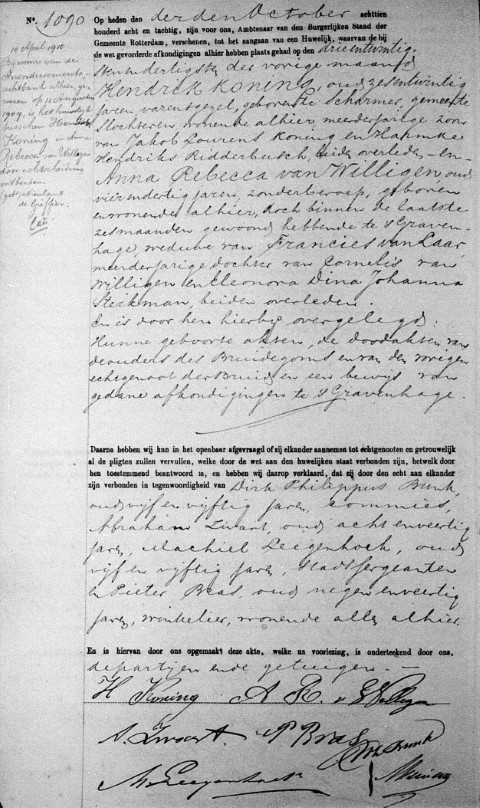 Nº. 1090
Op heden den derden October achttien
honderd acht en tachtig, zijn voor ons, Ambtenaar van den Burgerlijken Stand der
Gemeente Rotterdam, verschenen, tot het aangaan van een Huwelijk, waarvan de bij
de wet gevorderde afkondigingen alhier hebben plaats gehad op den drieentwintig-
en dertigsten der vorige maand
Hendrik Koning, oud zesentwintig
jaren, varensgezel, geboren te Scharmer, gemeente
Slochteren, wonende alhier, meerderjarige zoon
van Jakob Lourens Koning en Harmke
Hendriks Ridderbusch, beiden overleden, -en-
Anna Rebecca van Willigen, oud
vierendertig jaren, zonder beroep, geboren
en wonende alhier, doch binnen de laatste
zes maanden gewoond hebbende te 's Graven-
hage, weduwe van Francies van Laar,
meerderjarige dochter van Cornelis van
Willigen en Eleonora Dina Johanna
beiden overleden.
En is door hen hierbij overgelegd:
Hunne geboorte akten, de doodakten van
de ouders des Bruidegoms en van den vorigen
echtgenoot der Bruid en een bewijs van
gedane afkondigingen te 's Gravenhage.
14 April 1910
Bij vonnis van de
Arrondissements-
rechtbank alhier, ge-
1909, is het huwelijk
tusschen Hendrik
Koning en Anna
Rebecca van Willigen
door echtscheiding
ontbonden
de Griffier
Daarna hebben wij hun in het openbaar afgevraagd of zij elkander aannemen tot echtgenooten en getrouwelijk
al de pligten zullen vervullen, welke door de wet aan den huwelijken staat verbonden zijn, hetwelk door
hen toestemmend beantwoord is, en hebben wij daarop verklaard, dat zij door den echt aan elkander
zijn verbonden in tegenwoordigheid van Dirk Philippus Bunk,
oud vijf en vijftig jaren, commies,
Abraham Zwart, oud acht en veertig
jaren, Machiel Leegenhoek, oud
vijf en vijftig jaren, stadssergeanten
en Pieter Bras, oud negen en veertig
jaren, winkelier, wonende allen alhier.
En is hiervan door ons opgemaakt deze akte, welke na voorlezing, is onderteekend door ons,
de partijen en de getuigen. —
H Koning A R v Willigen
A. Zwart P Bras
M Leegenhoek